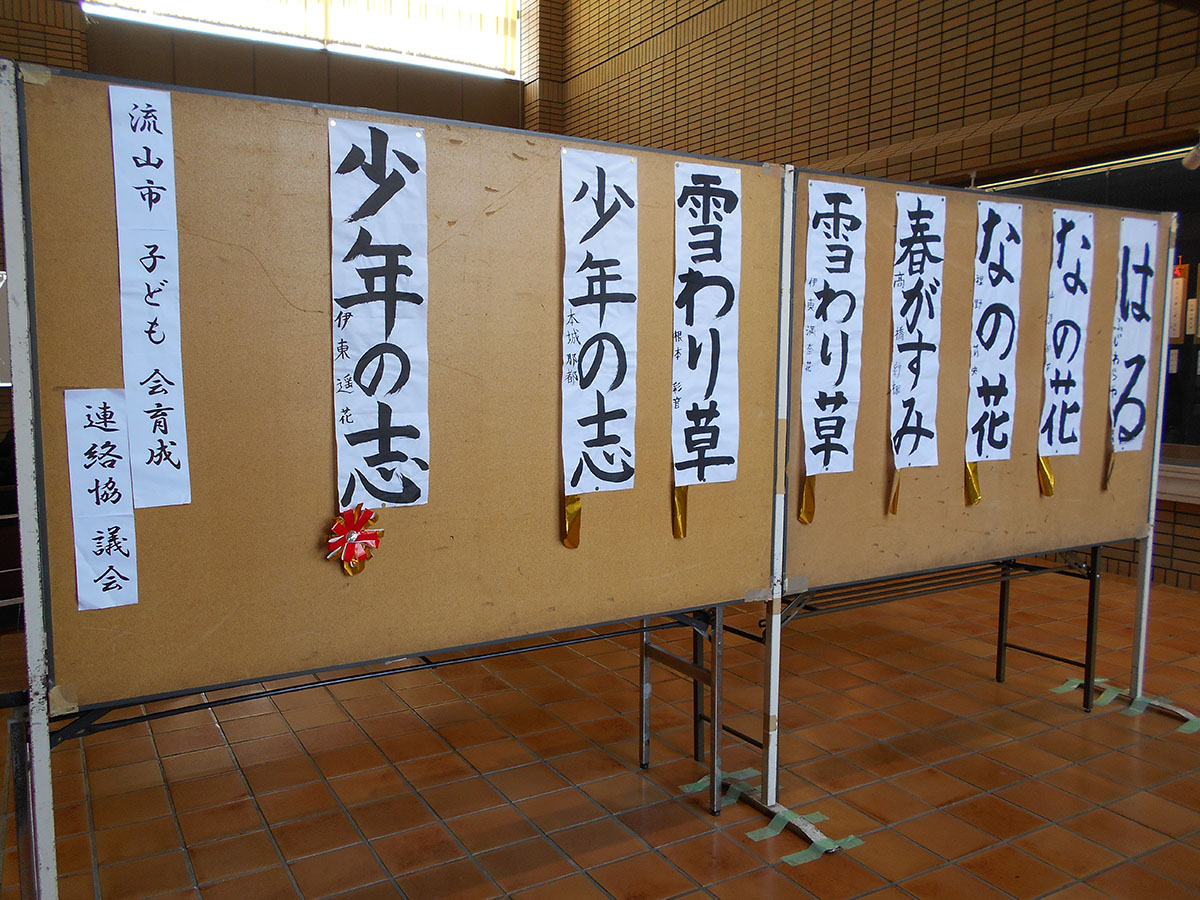 流山市 子ども 会育成
連絡協議会
少年の志
伊東遥花
少年の志
本城那都
雪わり草
根本
雪わり草
伊東
春がすみ
高橋
なの花
なの花
はる